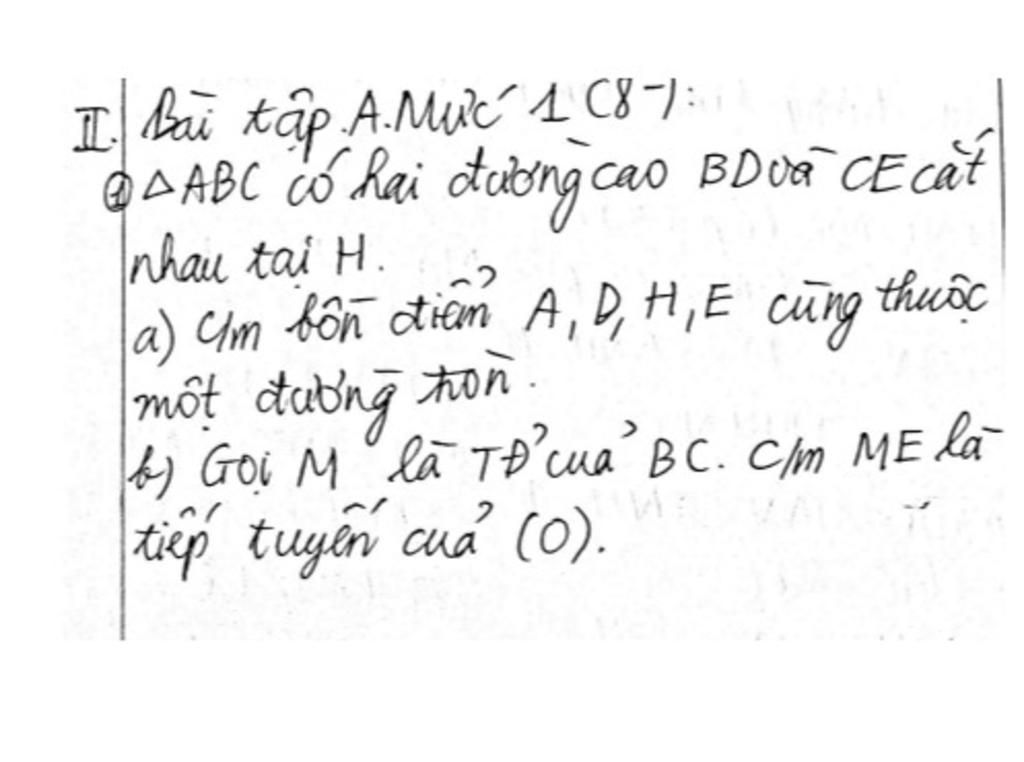 II. Bài tập. A. Mức 1 (8-):
① △ABC có hai đường cao BD và CE cắt
nhau tại H.
a) C/m bốn điểm A, D, H, E cùng thuộc
một đường tròn.
b) Gọi M là TĐ' của BC. C/m ME là
tiếp tuyến của (O).